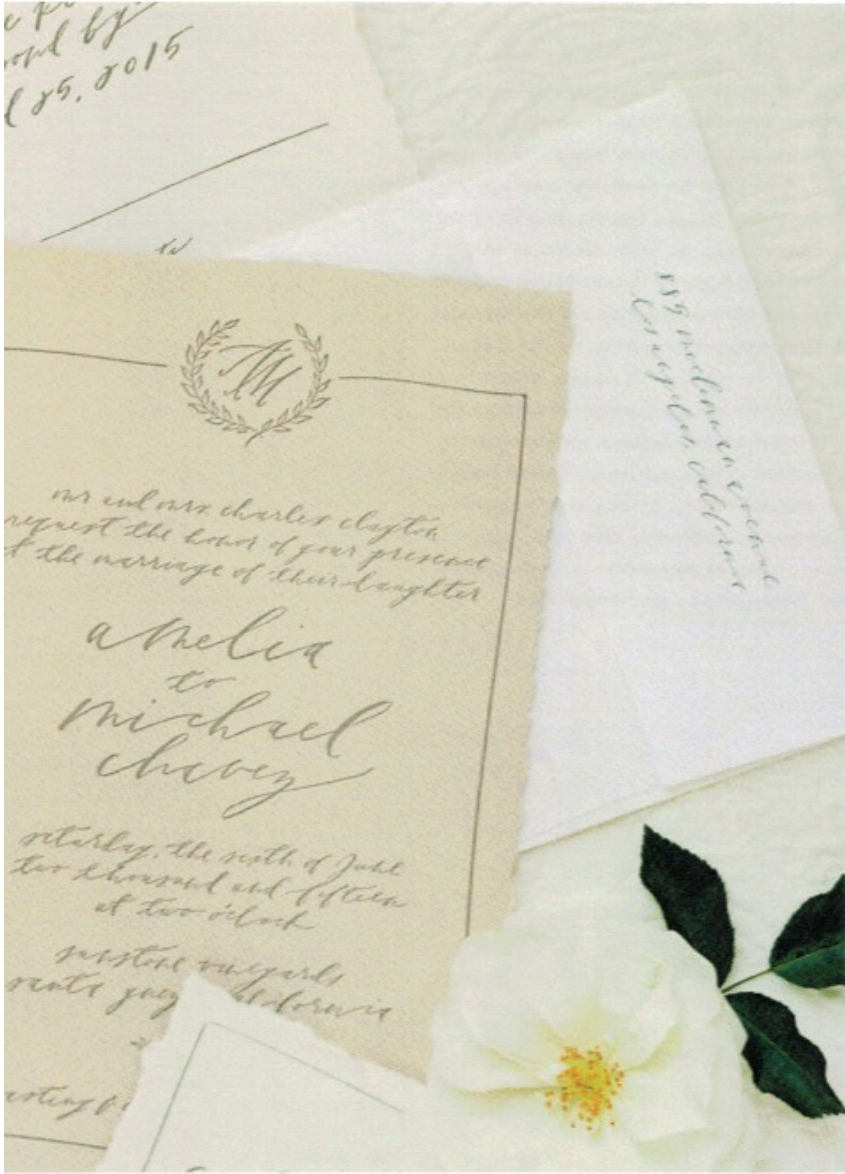 by
25, 2015
AM
mr and mrs. charles clayton
request the honor of your presence
the marriage of their daughter
amelia
to
michael
chavez
saturday, the sixth of june
two thousand and fifteen
at two o'clock
sunstone vineyards
santa ynez california
los angeles, california